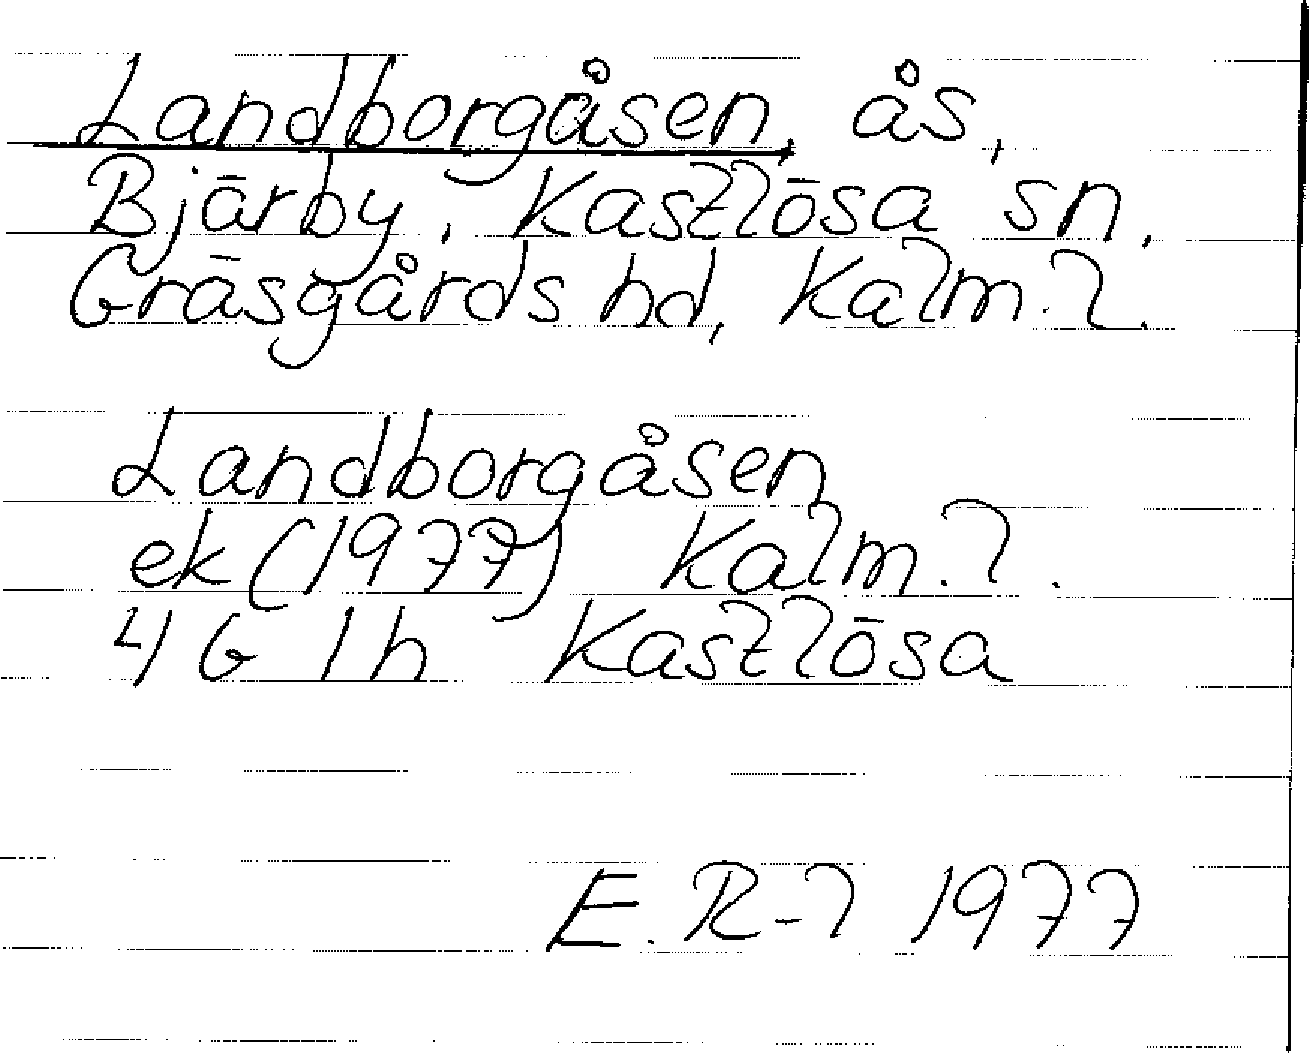 Landborgåsen, ås,
Bjärby, Kastlösa sn,
Gräsgårds hd, Kalm. l.
Landborgåsen
ek (1977) Kalm. l.
4G 1h Kastlösa
E. R-l 1977